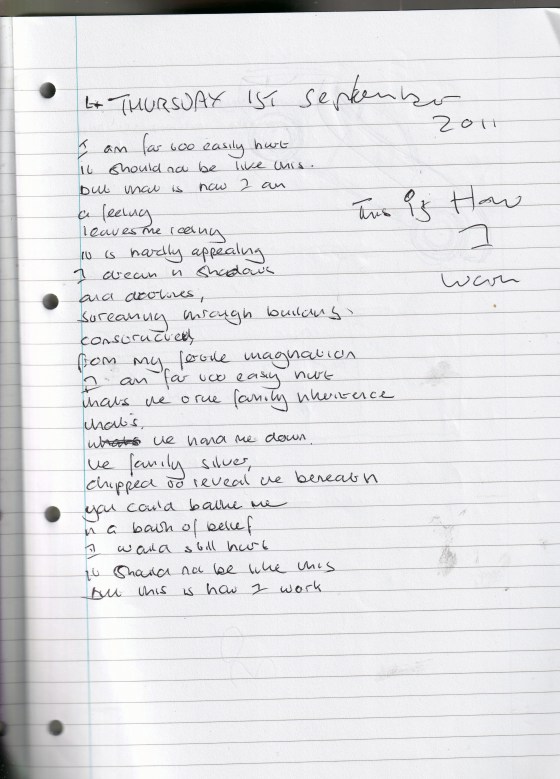 THURSDAY 1ST September
2011
I am far too easily hurt
it should not be like this.
but that is how I am
a feeling
leaves me reeling
it is hardly appealing
I dream in shadows
and doorways,
screaming through buildings
constructed,
from my fertile imagination
I am far too easy hurt
thats the one family inheritence
thats,
the hand me down.
the family silver,
chipped to reveal the beneath
you could bathe me
in a bath of belief
I would still hurt
it should not be like this
but this is how I work
This is How
I
work